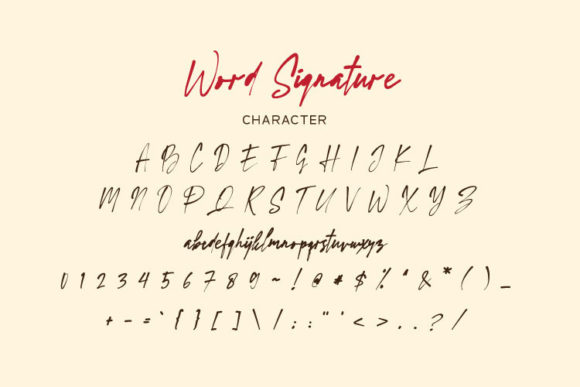 Word Signature
CHARACTER
A B C D E F G H I J K L
M N O P Q R S T U V W X Y Z
abcdefghijklmnopqrstuvwxyz
0 1 2 3 4 5 6 7 8 9 ~ ! @ # $ % ^ & * ( ) _
+ - = ` { } [ ] \ / : ; " ' < > , . ? /